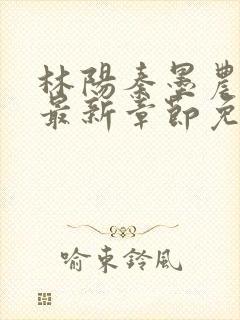 林陽秦墨農
最新章節免
喻東鈴風